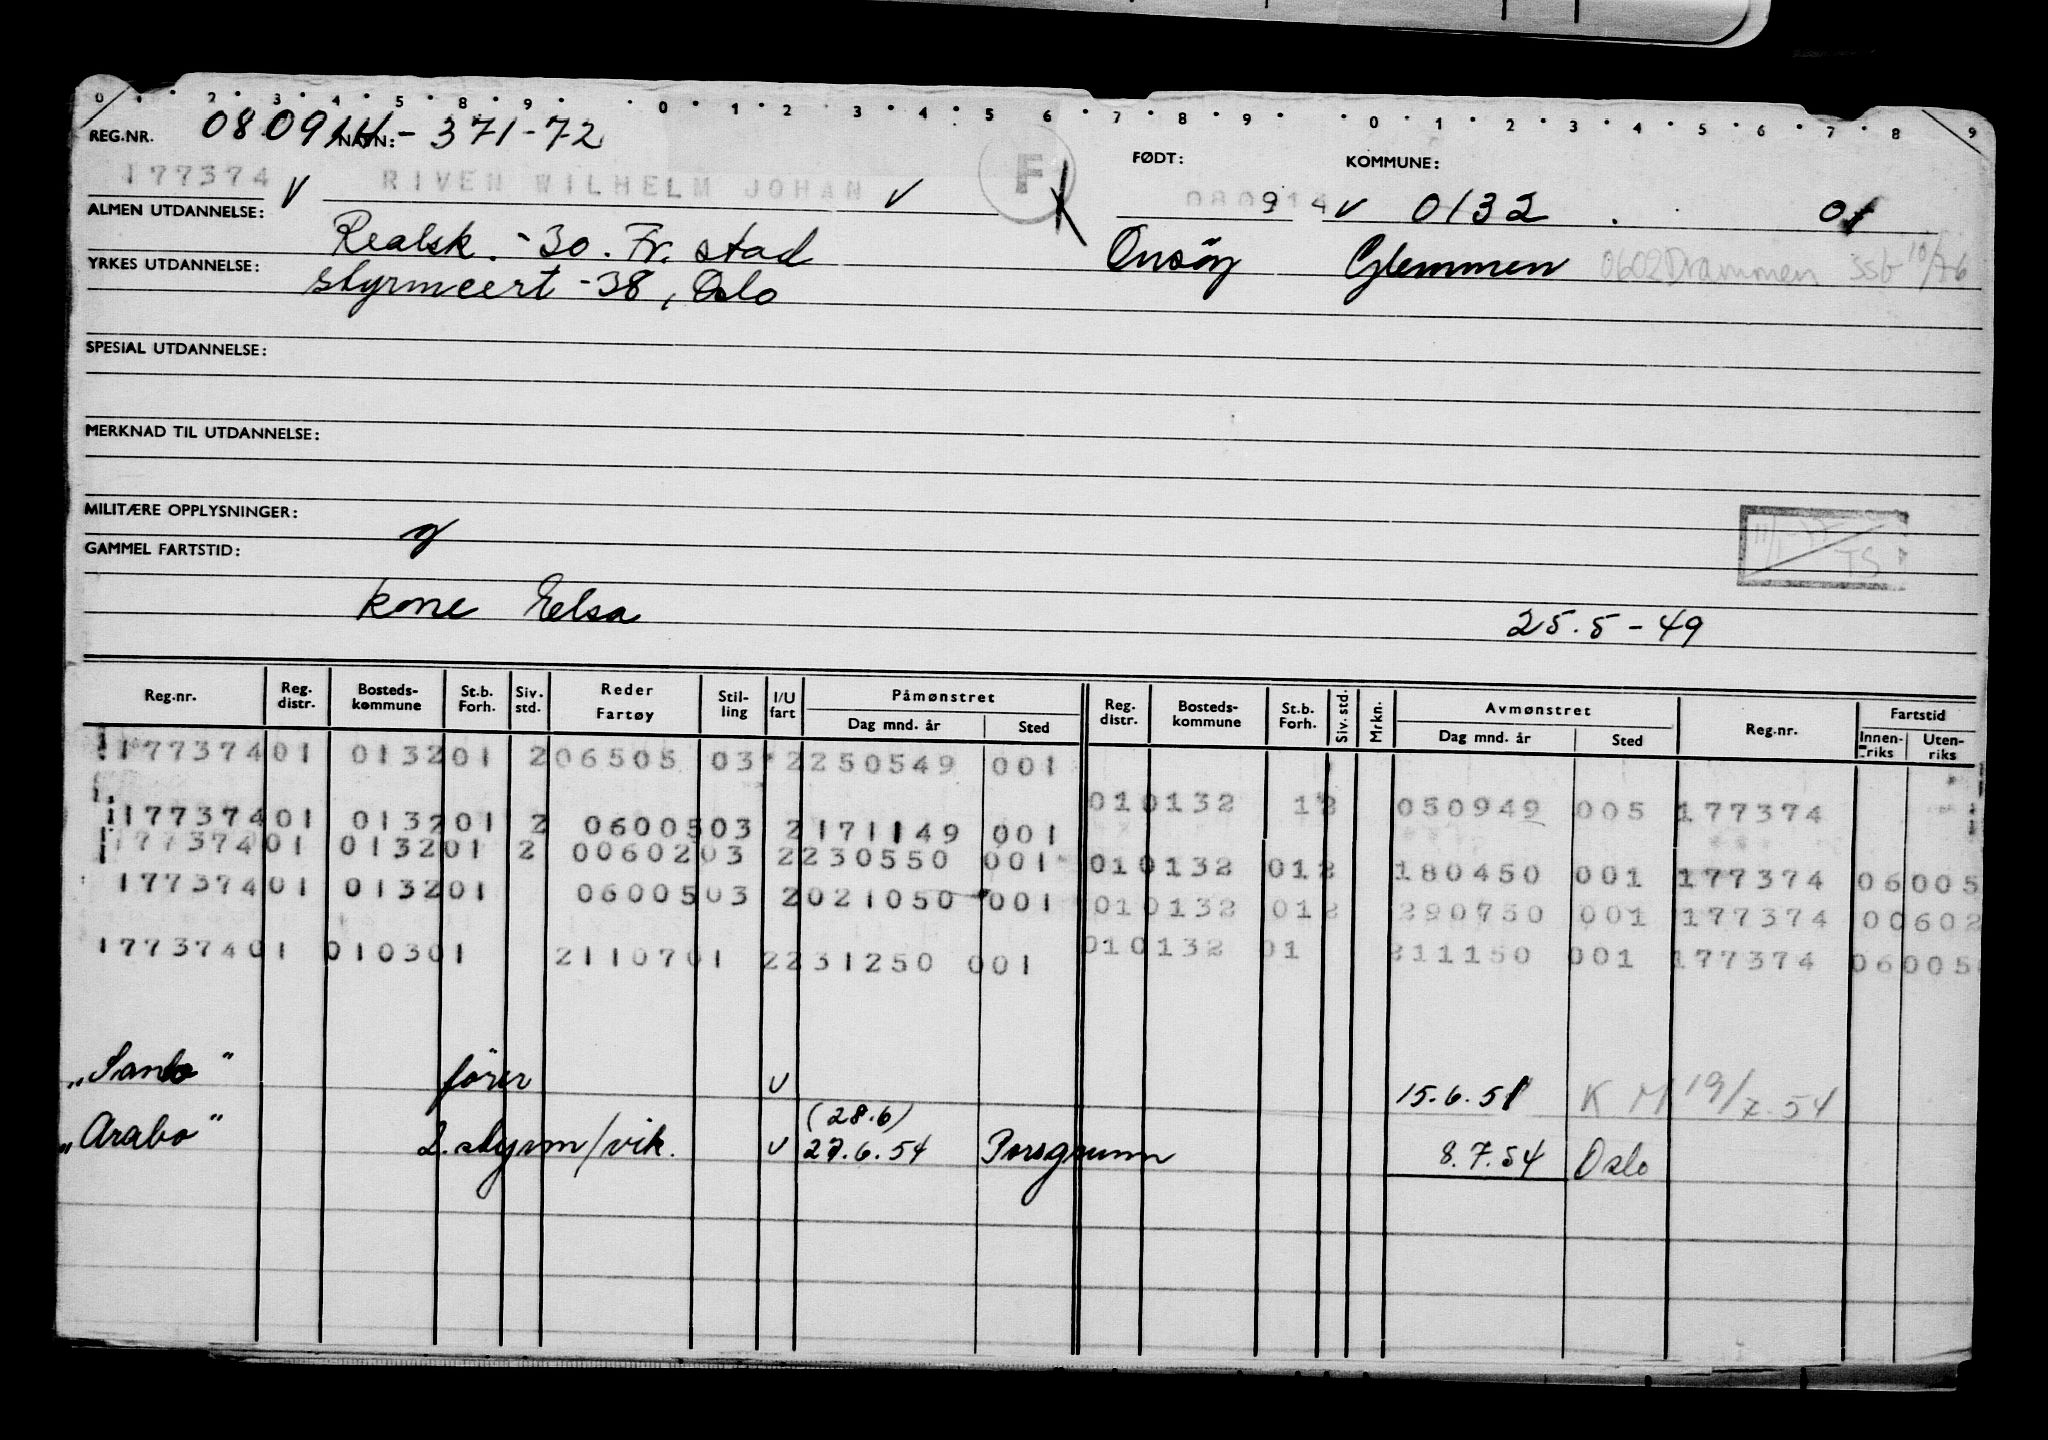 0 2 3 4 5 8 9 0 1 2 3 4 5 6 7 8 9 0 1 2 3 4 5 6 7 8 9
REG.NR. 080914 - 371-72 NAVN: FØDT: KOMMUNE:
177374 V RIVEN WILHELM JOHAN V F 080914 V 0132 01
ALMEN UTDANNELSE: Realsk. - 30. Fr. stad Onsöy Glemmen 0602 Drammen ssb 10/76
YRKES UTDANNELSE: styrmcert - 38, Oslo
SPESIAL UTDANNELSE:
MERKNAD TIL UTDANNELSE:
MILITÆRE OPPLYSNINGER:
GAMMEL FARTSTID:
TS
kone Eelsa 25.5-49
Reg.nr. Reg. distr. Bosteds-kommune St.b. Forh. Siv. std. Reder Fartøy Stil-ling I/U fart Påmønstret Dag mnd. år Sted Reg. distr. Bosteds-kommune St.b. Forh. Siv. std. Mrkn. Avmønstret Dag mnd. år Sted Reg.nr. Fartstid Innen-riks Uten-riks
177374 01 0132 01 2 06505 03 2 250549 001
01 0132 1 2 050949 005 177374
177374 01 0132 01 2 06005 03 2 171149 001
177374 01 0132 01 2 00602 03 2 230550 001
01 0132 01 2 180450 001 177374 06005
177374 01 0132 01 06005 03 2 021050 001
01 0132 01 2 290750 001 177374 00602
177374 01 0103 01 21107 01 2 231250 001
01 0132 01 211150 001 177374 06005
"Sanbo" förer U 15.6.51 K M 19/7.54
(28.6)
"Arabo" 2. styrm/vik. U 27.6.54 Porsgrunn 8.7.54 Oslo